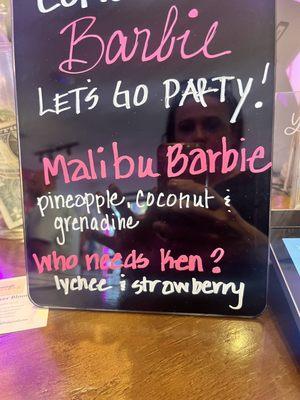 Barbie
LET'S GO PARTY!
Malibu Barbie
pineapple, coconut &
grenadine
Who needs Ken?
lychee & strawberry